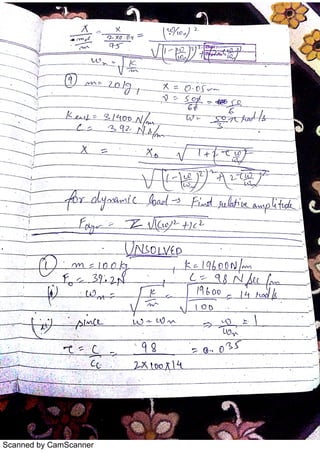 X/(mel/m) = X/(2×0.09/95) = (ω/ωn)² / √(1-(ω/ωn)²)²+
ωn = √(k/m)
(9) m = 20 kg, x = 0.05 m
ω = 50π/3 rad/s
k = 31400 N/m
C = 392 N.s/m
X = X₀ √1+(2τω/ωn)² / √(1-(ω/ωn)²)²+(2τω/ωn)²
for dynamic load → Find relative amplitude
F = Z √(cω)²+k²
UNSOLVED
(1) m = 100 kg, k = 19600 N/m
F₀ = 39.2 N C = 98 N sec/m
(i) ωn = √(k/m) = √(19600/100) = 14 rad/s
(ii) since ω = ωn ⇒ ω/ωn = 1
τ = C/Cc = 98/(2×100×14) = 0.035
Scanned by CamScanner